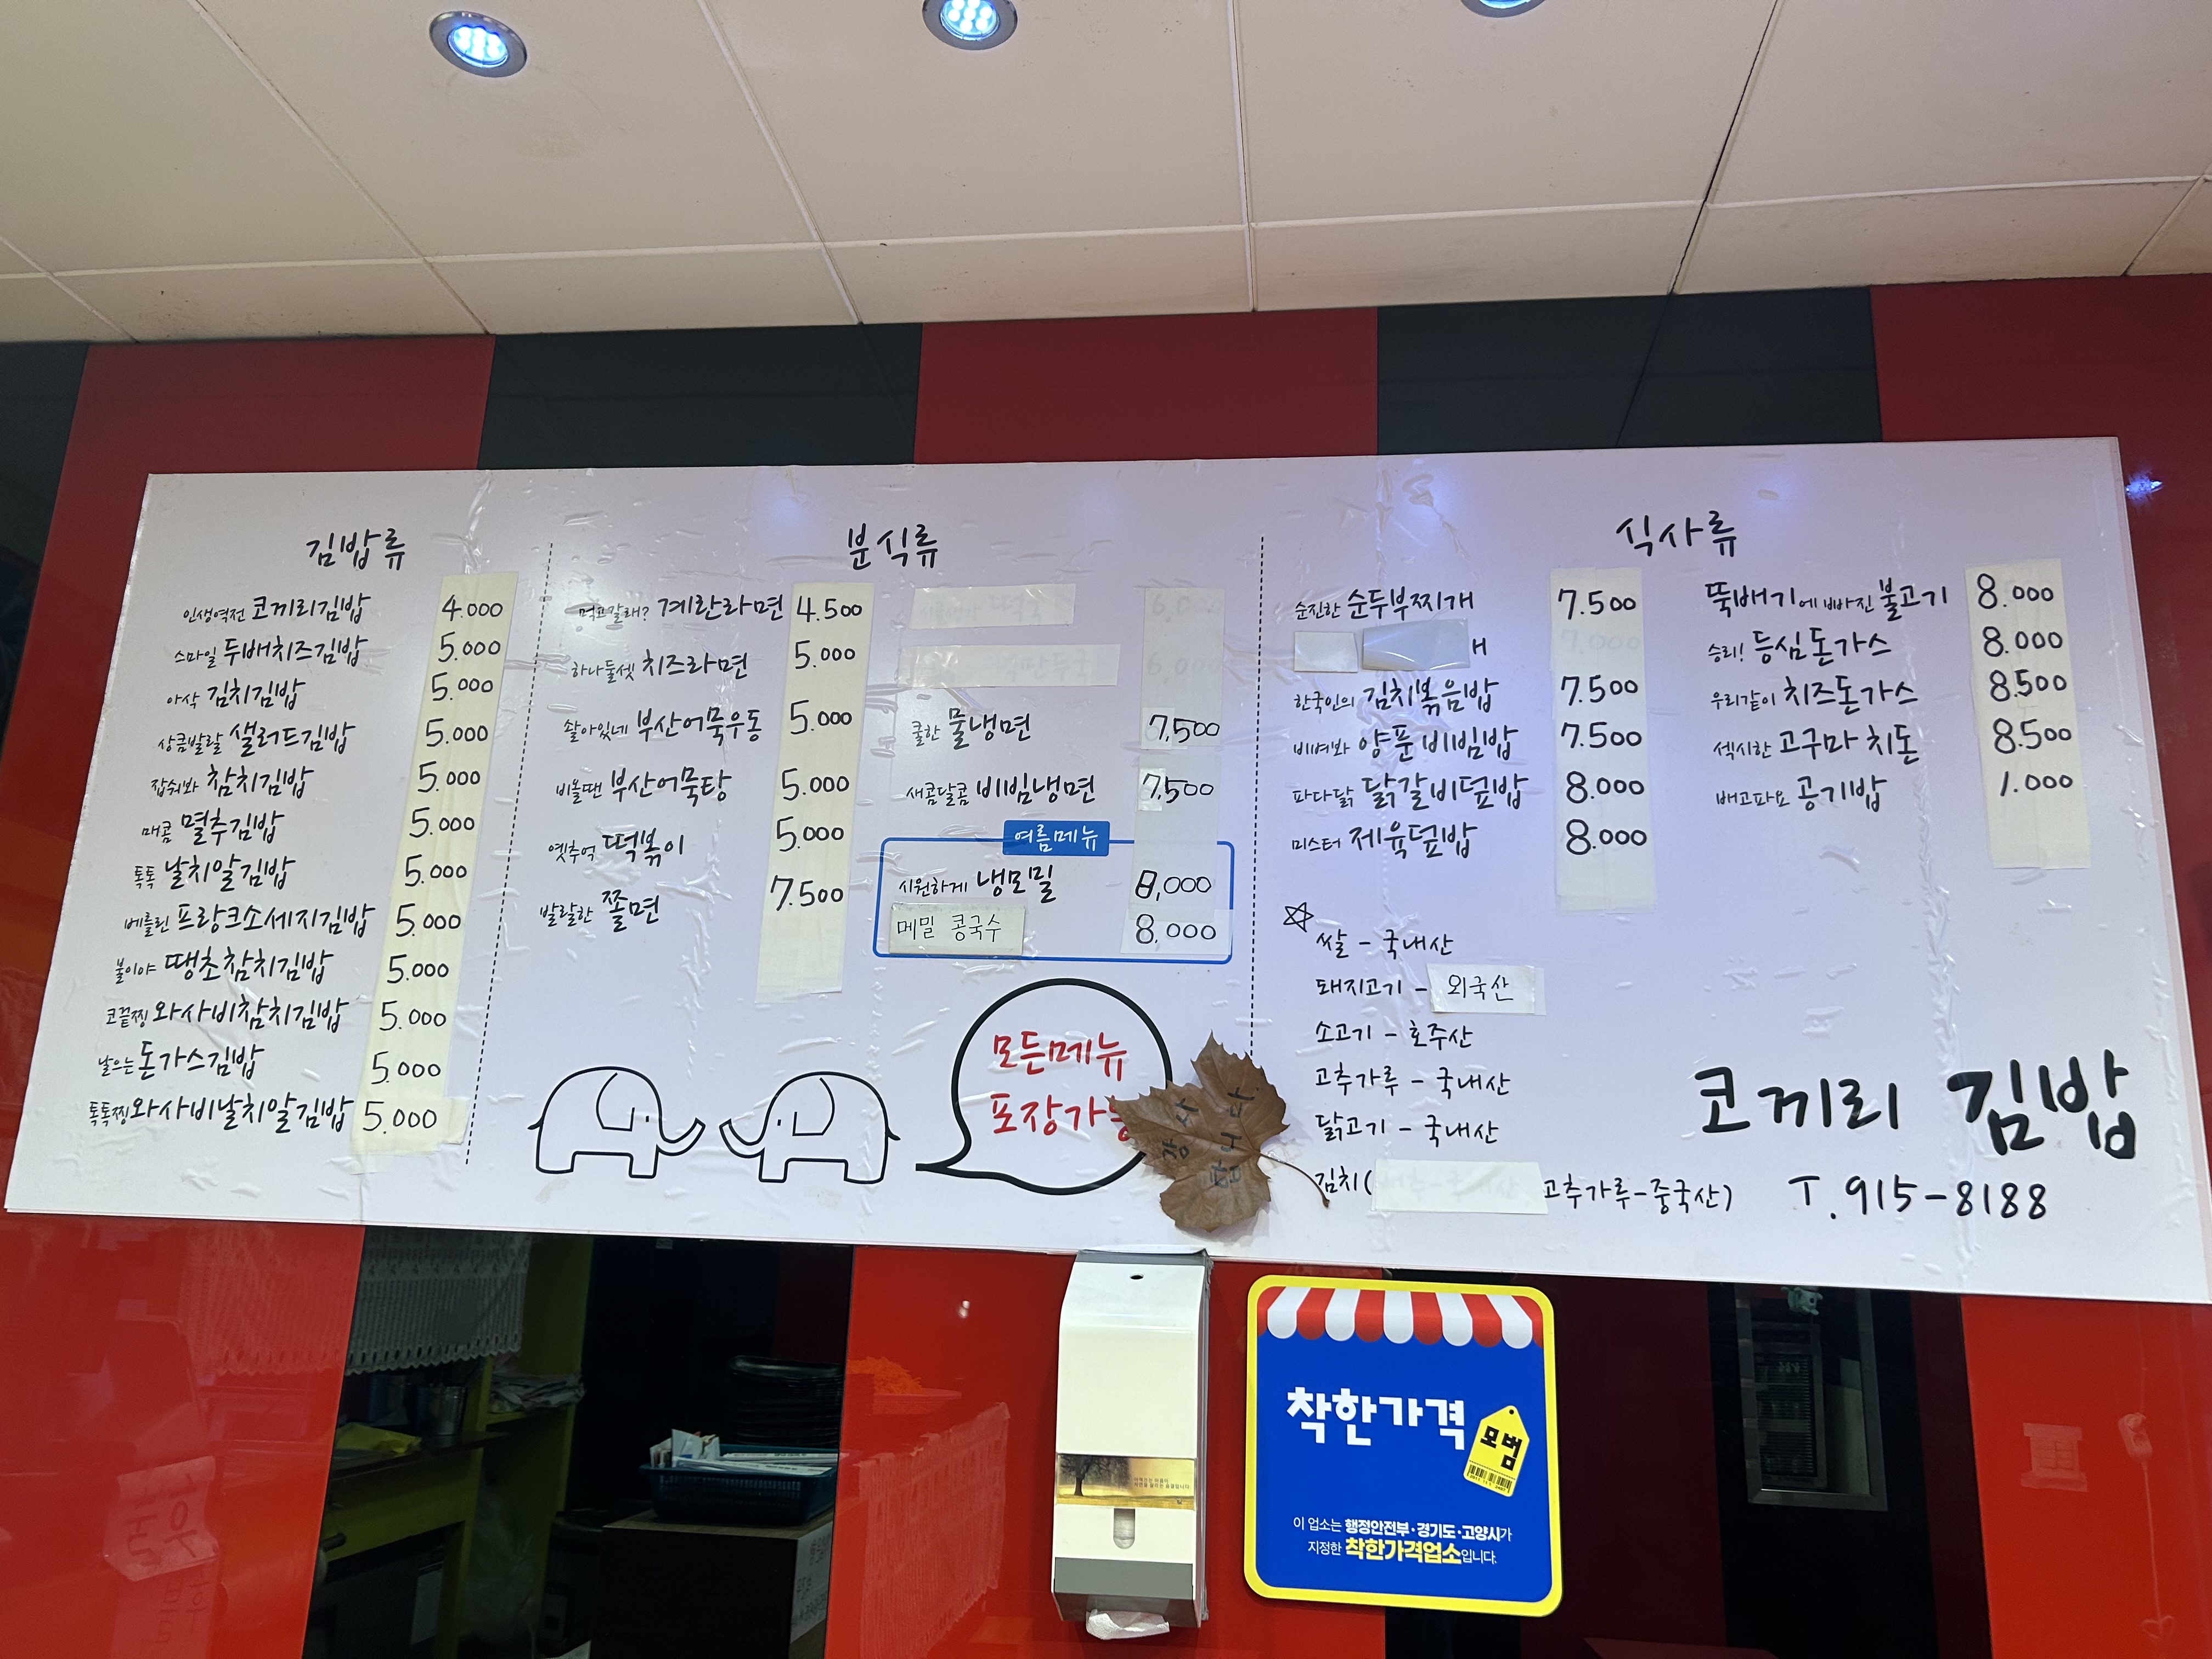 김밥류
인생역전 코끼리김밥 4.000
스마일 두배치즈김밥 5.000
아삭 김치김밥 5.000
상큼발랄 샐러드김밥 5.000
잡숴봐 참치김밥 5.000
매콤 멸추김밥 5.000
톡톡 날치알김밥 5.000
베를린 프랑크소세지김밥 5.000
불이야 땡초참치김밥 5.000
코끝찡 와사비참치김밥 5.000
날으는 돈가스김밥 5.000
톡톡찡 와사비날치알김밥 5.000
분식류
먹고갈래? 계란라면 4.500
하나둘셋 치즈라면 5.000
살아있네 부산어묵우동 5.000
비올땐 부산어묵탕 5.000
옛추억 떡볶이 5.000
발랄한 쫄면 7.500
쿨한 물냉면 7,500
새콤달콤 비빔냉면 7,500
여름메뉴
시원하게 냉모밀 8,000
메밀 콩국수 8.000
모든메뉴
포장가능
감사
합니다
식사류
순진한 순두부찌개 7.500
한국인의 김치볶음밥 7.500
비벼봐 양푼비빔밥 7.500
파다닭 닭갈비덮밥 8.000
미스터 제육덮밥 8.000
뚝배기에 빠진 불고기 8.000
승리! 등심돈가스 8.000
우리같이 치즈돈가스 8.500
섹시한 고구마치돈 8.500
배고파요 공기밥 1.000
☆ 쌀 - 국내산
돼지고기 - 외국산
소고기 - 호주산
고추가루 - 국내산
닭고기 - 국내산
김치( 고추가루-중국산)
코끼리 김밥
T. 915-8188
착한가격
모범
이 업소는 행정안전부·경기도·고양시가
지정한 착한가격업소입니다.